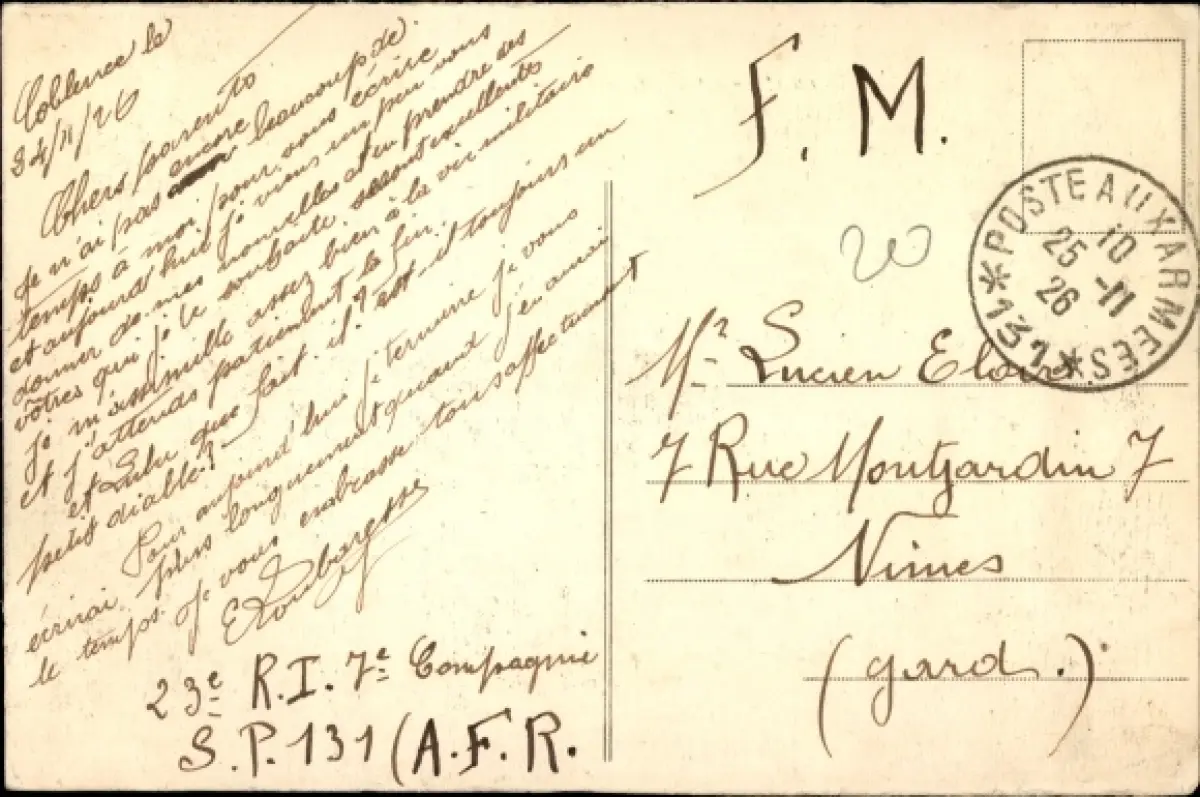 Coblence le
24/11/26
Chers parents
Je n'ai pas encore beaucoup de
temps à moi, pour vous écrire
et aujourd'hui je viens un peu vous
donner de mes nouvelles et en prendre des
vôtres qui je le souhaite seront excellents
je m'assimille assez bien à la vie militaire
et j'attends patiemment la fin.
et Lulu que fait-il? est-il toujours un
petit diable?
Pour aujourd'hui je termine je vous
écrirai plus longuement quand j'en aurai
le temps. Je vous embrasse tous affectueusement
23e R.I. 7e Compagnie
S.P. 131 (A.F.R.
F. M.
20
POSTE AUX ARMEES
* 131 *
10
25 -11
26
Mr Lucien Eloir
7 Rue Montjardin 7
Nimes
(gard.)